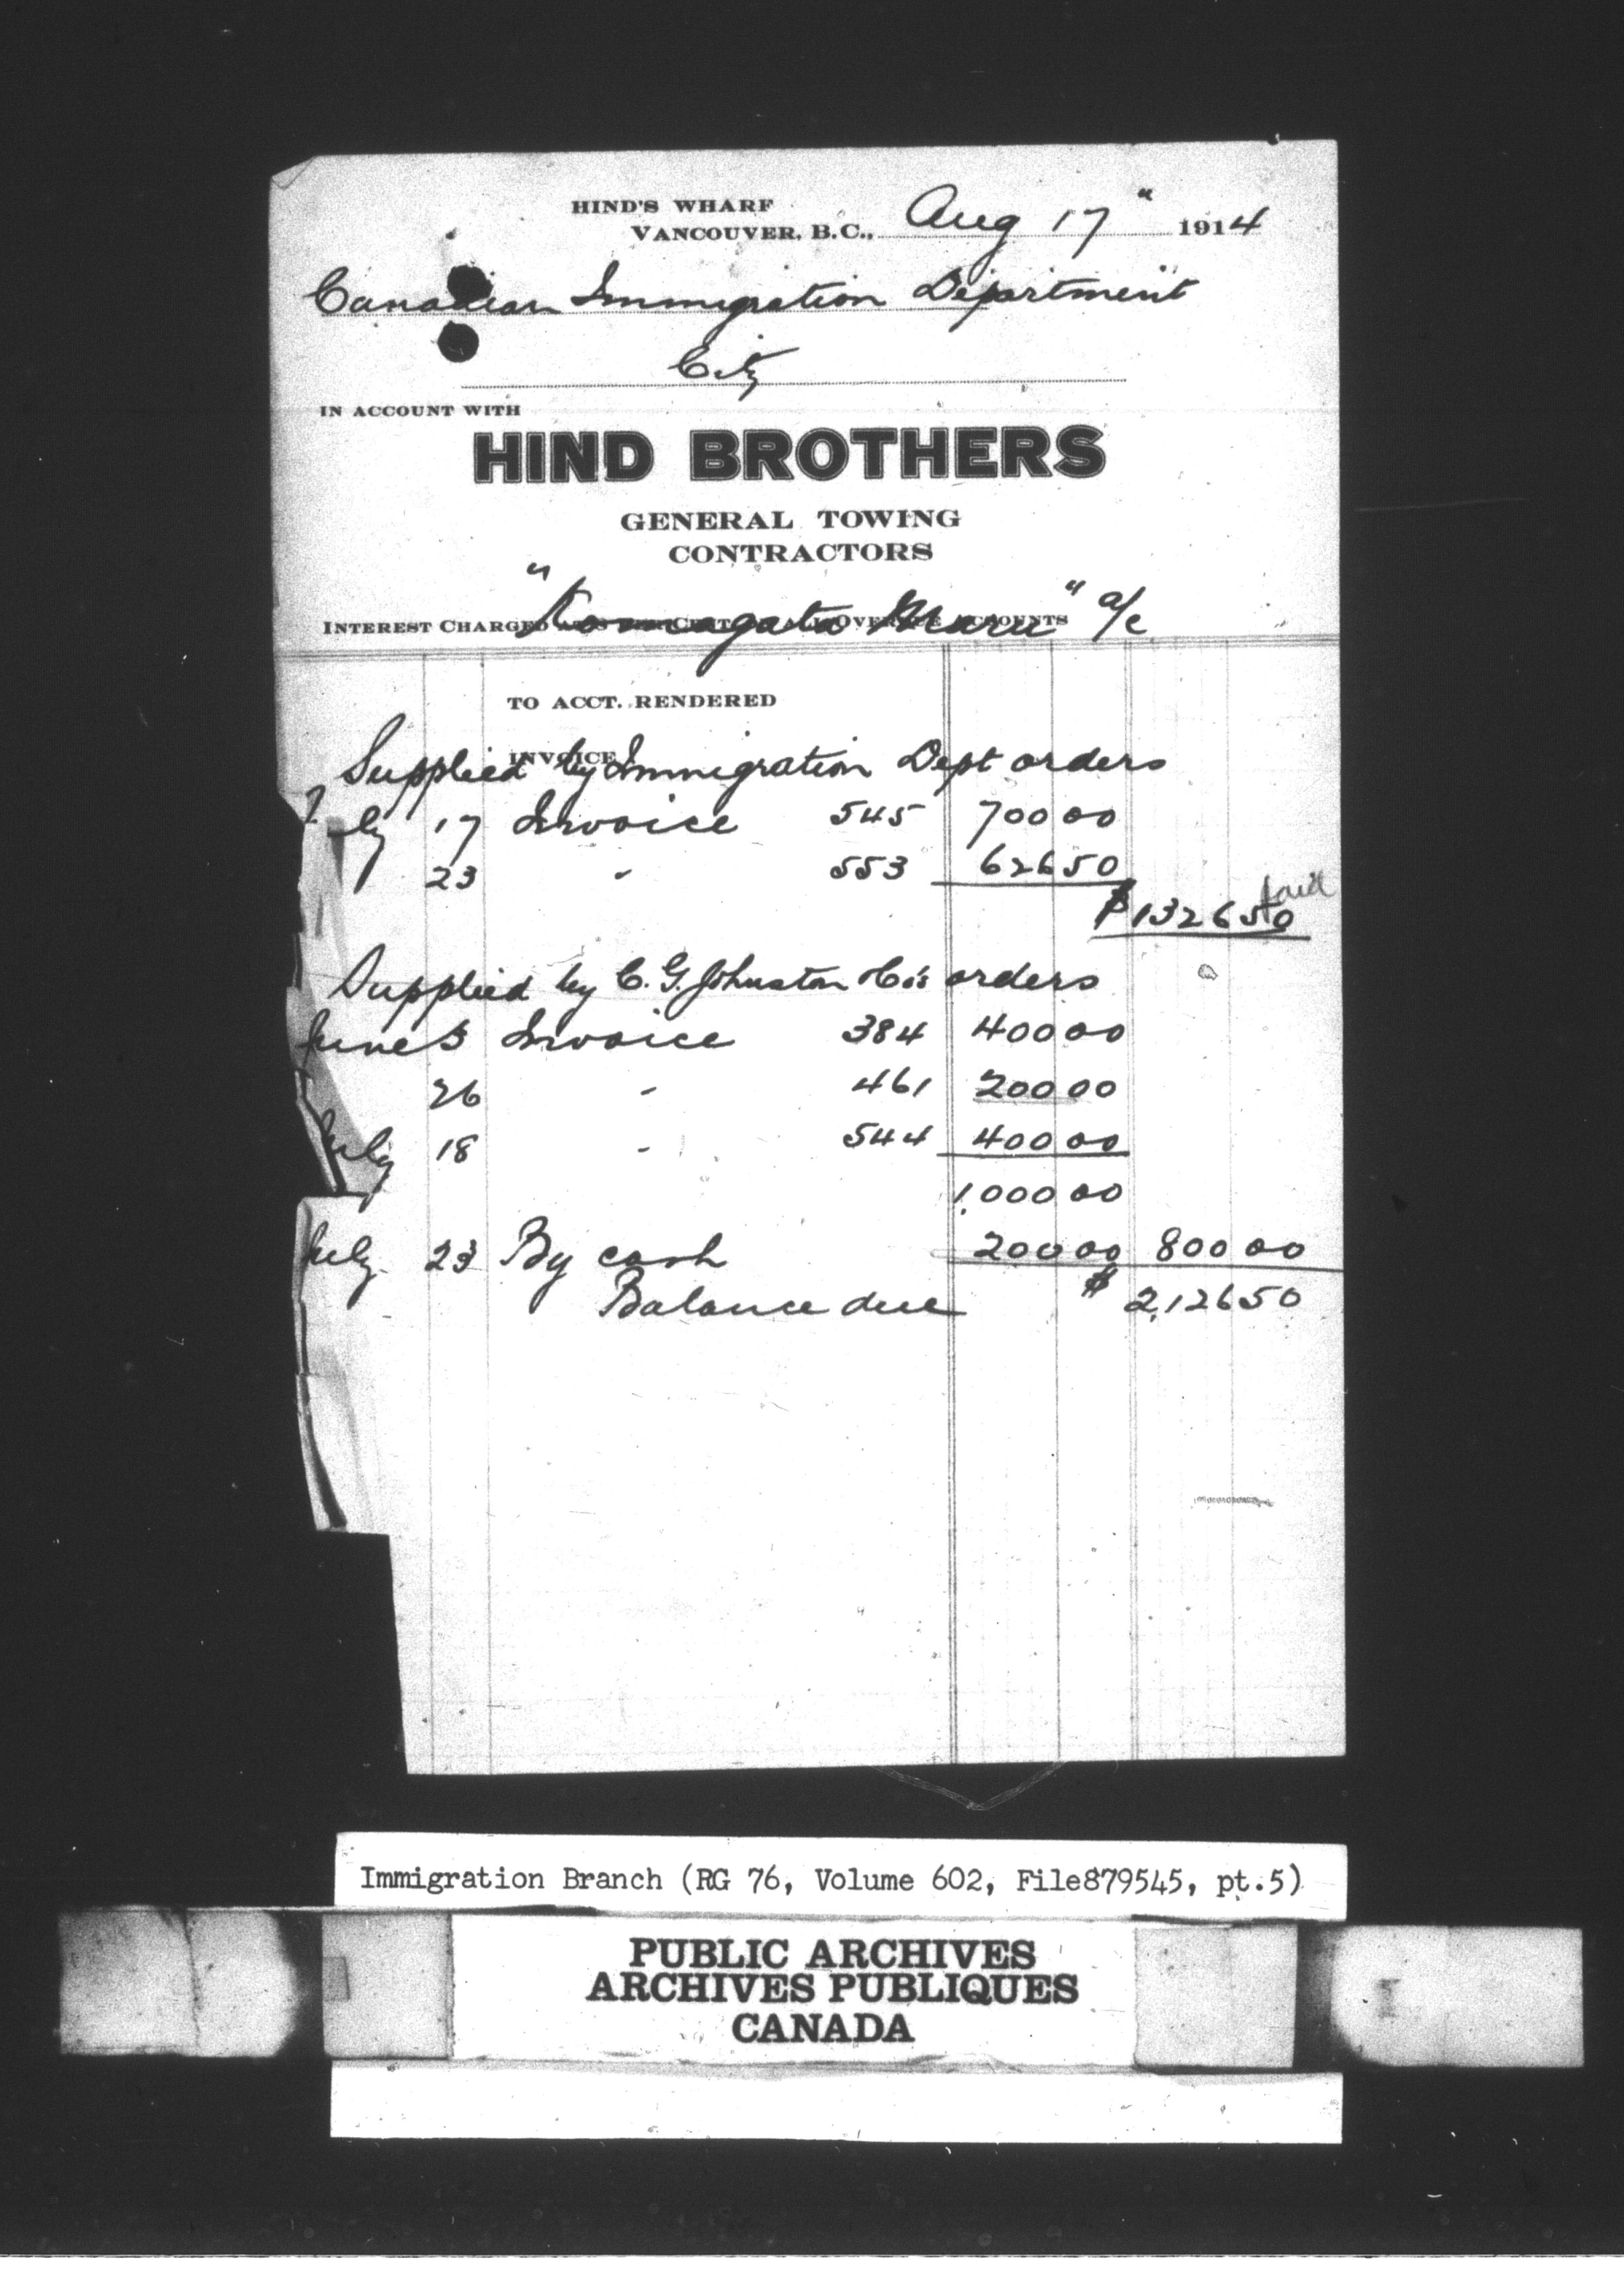 HIND'S WHARF
VANCOUVER, B.C., Aug 17" 1914
Canadian Immigration Department
City
IN ACCOUNT WITH
HIND BROTHERS
GENERAL TOWING
CONTRACTORS
"Komagata Maru" a/c
INTEREST CHARGED OVERDUE ACCOUNTS
TO ACCT. RENDERED
INVOICE
Supplied by Immigration Dept orders
July 17 Invoice 545 700 00
23 " 553 626 50
$1326 50 paid
Supplied by C. G. Johnston Co's orders
June 3 Invoice 384 400 00
26 " 461 200 00
July 18 " 544 400 00
1,000 00
July 23 By cash 200 00 800 00
Balance due $ 2,126 50
Immigration Branch (RG 76, Volume 602, File879545, pt.5)
PUBLIC ARCHIVES
ARCHIVES PUBLIQUES
CANADA